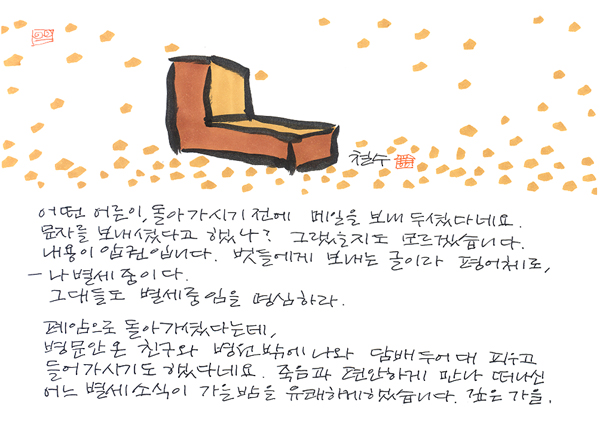 철수
어떤 어른이, 돌아가시기 전에 메일을 보내 두셨다네요.
문자를 보내셨다고 했나? 그랬을지도 모르겠습니다.
내용이 압권입니다. 벗들에게 보내는 글이라 평어체로,
– 나 별세 중이다.
그대들도 별세 중임을 명심하라.
폐암으로 돌아가셨다는데,
병문안 온 친구와 병원 밖에 나와 담배 두어 대 피우고
들어가시기도 했다네요. 죽음과 편안하게 만나 떠나신
어느 별세 소식이 가을밤을 유쾌하게 했습니다. 깊은 가을.